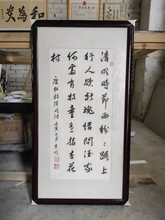 和為貴
清明時節雨紛紛路上
行人欲斷魂借問酒家
何處有牧童遥指杏花
村
唐杜牧